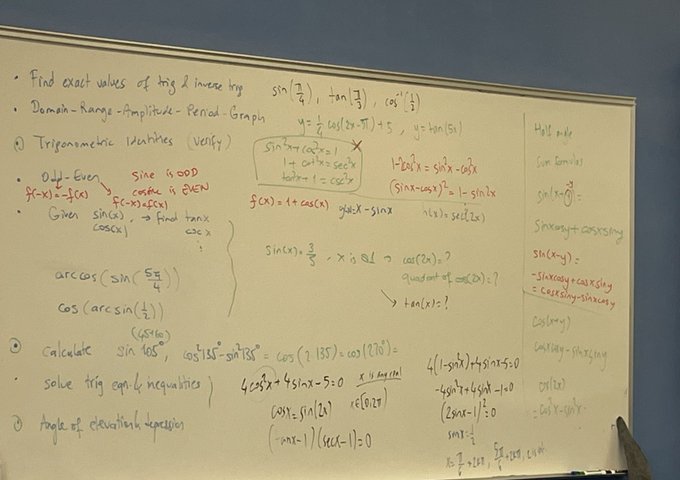 • Find exact values of trig & inverse trig sin(π/4), tan(π/3), cos⁻¹(1/2)
• Domain-Range-Amplitude-Period-Graph y=1/4 cos(2x-π)+5, y=tan(5x)
• Trigonometric identities (verify)
sin²x+cos²x=1
1+cot²x=sec²x
tan²x+1=csc²x
1-2cos²x=sin²x-cos²x
(sinx-cosx)²=1-sin2x
• Odd-Even sine is ODD
cosine is EVEN
f(-x)=-f(x) f(-x)=f(x)
f(x)=1+cos(x) g(x)=x-sinx h(x)=sec(2x)
• Given sin(x) → find tanx
cos(x)
sin(x)=3/5, x is Q1 → cos(2x)=?
quadrant of cos(2x)=?
→ tan(x)=?
arccos(sin(5π/4))
cos(arcsin(1/2))
(45+60)
• Calculate sin 105°, cos²135°-sin²135° = cos(2·135)=cos(270°)=
• solve trig eqn. & inequalities
4cos²x+4sinx-5=0 x is any real
cosx=sin(2x) x∈[0,2π)
(tanx-1)(secx-1)=0
4(1-sin²x)+4sinx-5=0
-4sin²x+4sinx-1=0
(2sinx-1)²=0
sinx=1/2
• Angle of elevation & depression
Half angle
sum formulas
sin(x+y)
-y
sinxcosy+cosxsiny
sin(x-y)=
-sinxcosy+cosxsiny
=cosxsiny-sinxcosy
cos(x+y)
cosxcosy-sinxsiny
cos(2x)
=cos²x-sin²x